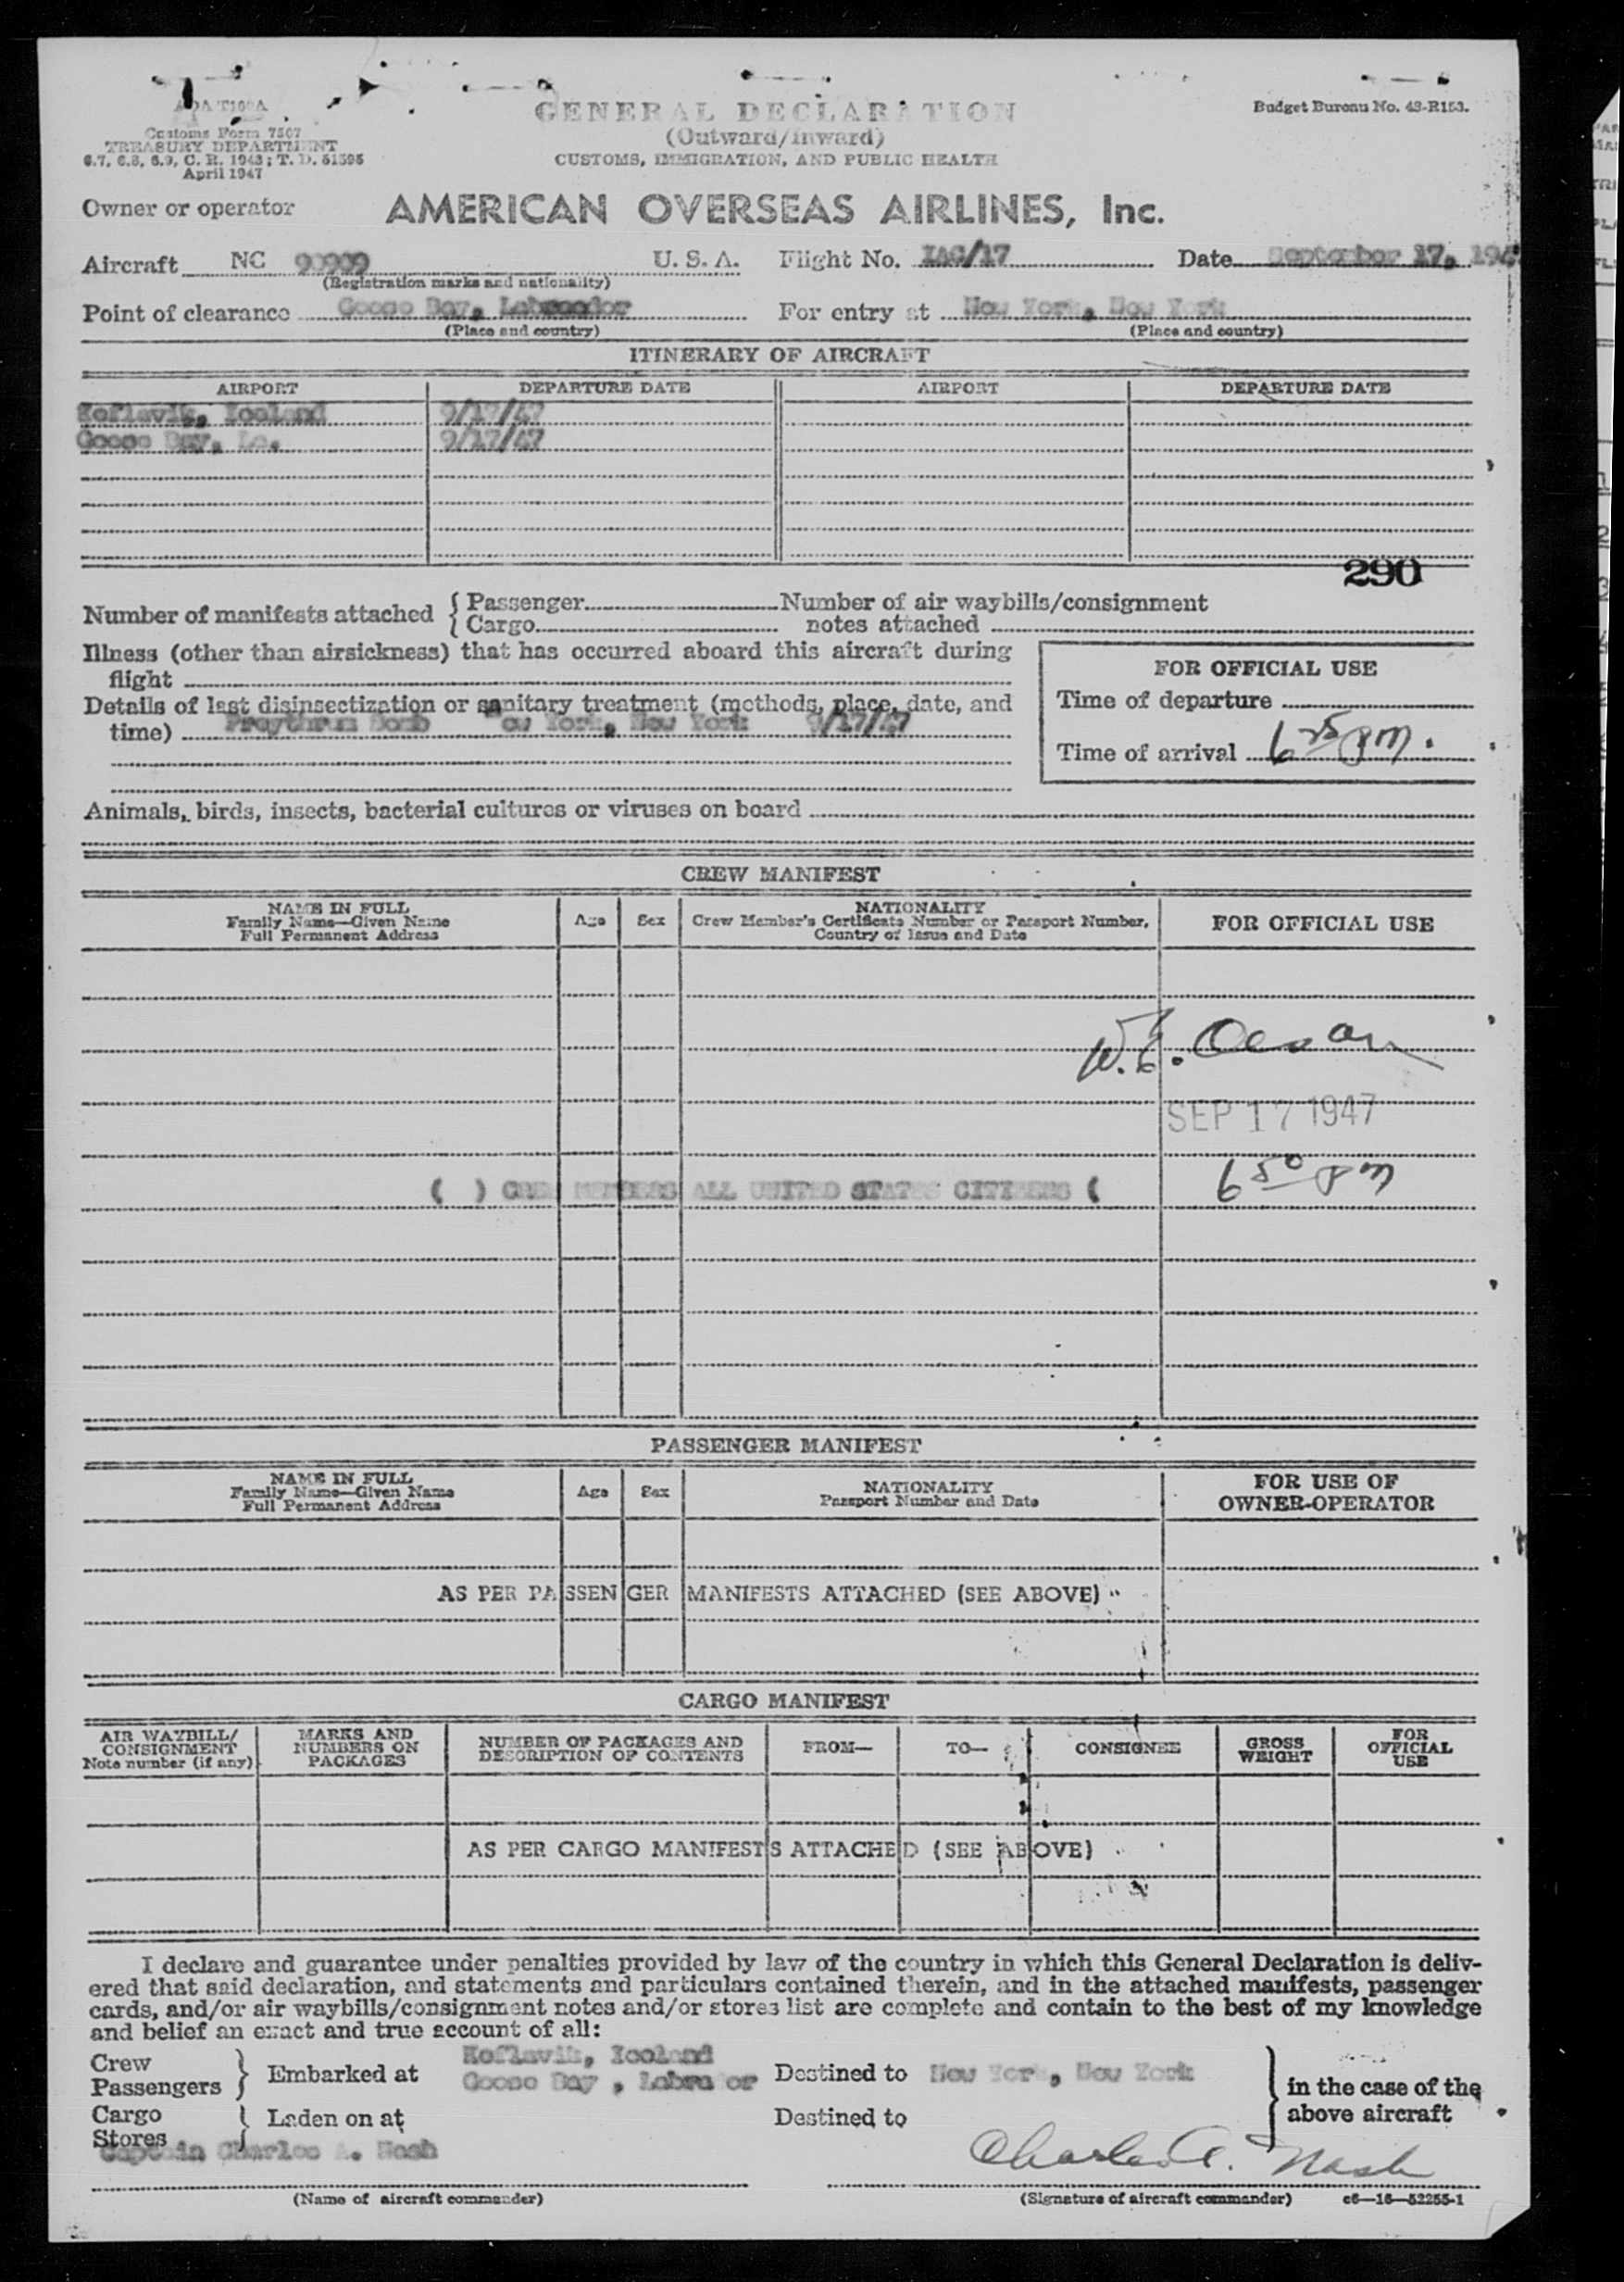 AOA T100A
Customs Form 7507
TREASURY DEPARTMENT
6.7, 6.8, 6.9, C. R. 1943; T. D. 51595
April 1947
GENERAL DECLARATION
(Outward/Inward)
CUSTOMS, IMMIGRATION, AND PUBLIC HEALTH
Budget Bureau No. 43-R153.
Owner or operator AMERICAN OVERSEAS AIRLINES, Inc.
Aircraft NC 90909 U. S. A. Flight No. /17 Date September 17, 194
(Registration marks and nationality)
Point of clearance Goose Bay, Labrador For entry at New York, New York
(Place and country) (Place and country)
ITINERARY OF AIRCRAFT
AIRPORT DEPARTURE DATE AIRPORT DEPARTURE DATE
Keflavik, Iceland 9/17/47
Goose Bay, La. 9/17/47
290
Number of manifests attached { Passenger Number of air waybills/consignment
Cargo notes attached
Illness (other than airsickness) that has occurred aboard this aircraft during
flight
Details of last disinsectization or sanitary treatment (methods, place, date, and
time) Bomb New York, New York 9/17/47
FOR OFFICIAL USE
Time of departure
Time of arrival 6 25 PM.
Animals, birds, insects, bacterial cultures or viruses on board
CREW MANIFEST
NAME IN FULL
Family Name—Given Name
Full Permanent Address
Age Sex
NATIONALITY
Crew Member's Certificate Number or Passport Number,
Country of Issue and Date
FOR OFFICIAL USE
SEP 17 1947
( ) CREW MEMBERS ALL UNITED STATES CITIZENS (
6 50 PM
PASSENGER MANIFEST
NAME IN FULL
Family Name—Given Name
Full Permanent Address
Age Sex
NATIONALITY
Passport Number and Date
FOR USE OF
OWNER-OPERATOR
AS PER PASSENGER MANIFESTS ATTACHED (SEE ABOVE)
CARGO MANIFEST
AIR WAYBILL/
CONSIGNMENT
Note number (if any)
MARKS AND
NUMBERS ON
PACKAGES
NUMBER OF PACKAGES AND
DESCRIPTION OF CONTENTS
FROM— TO— CONSIGNEE
GROSS
WEIGHT
FOR
OFFICIAL
USE
AS PER CARGO MANIFESTS ATTACHED (SEE ABOVE)
I declare and guarantee under penalties provided by law of the country in which this General Declaration is deliv-
ered that said declaration, and statements and particulars contained therein, and in the attached manifests, passenger
cards, and/or air waybills/consignment notes and/or stores list are complete and contain to the best of my knowledge
and belief an exact and true account of all:
Crew
Passengers } Embarked at Keflavik, Iceland
Goose Bay, Labrador Destined to New York, New York
Cargo
Stores } Laden on at Destined to
} in the case of the
above aircraft
Captain Charles A. Nash Charles A. Nash
(Name of aircraft commander) (Signature of aircraft commander) c6—16—52255-1